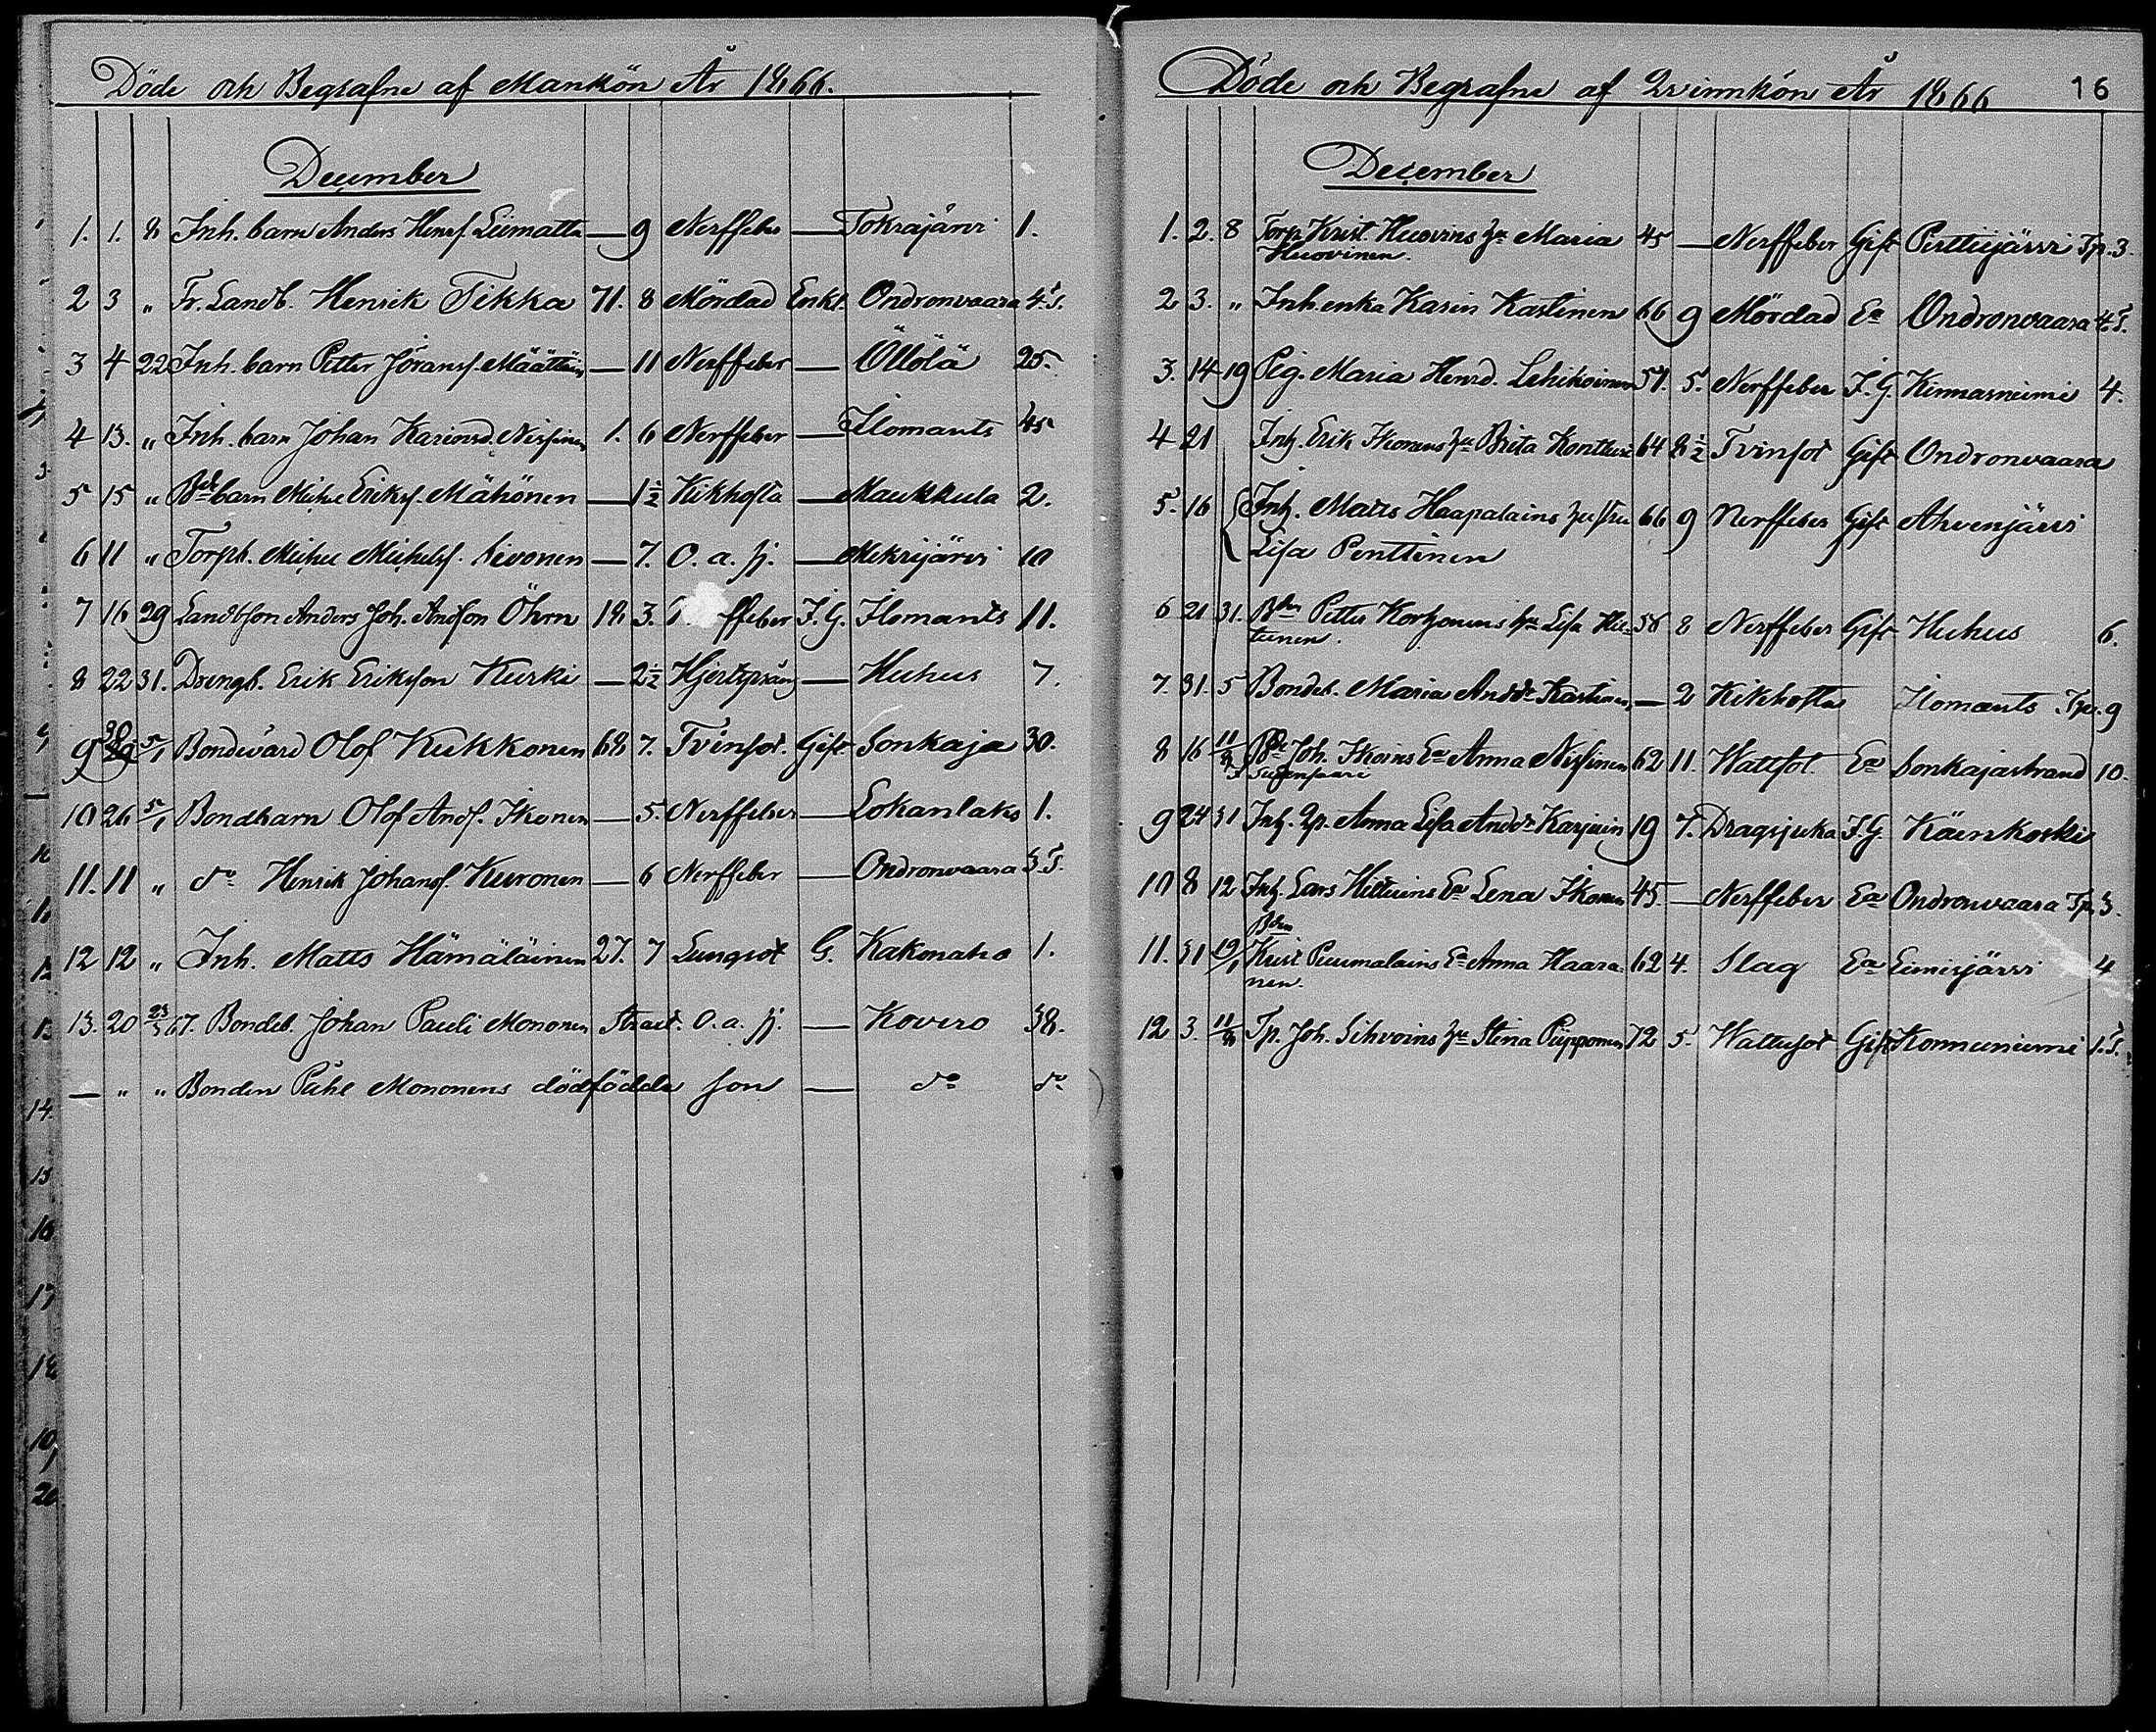 Döde och Begrafne af Mankön År 1866.
December
1. 1. 8 Inh. barn Anders Henrs. Liimatta — 9 Nerffeber — Tokrajärvi 1.
2 3 „ Fr. Landb. Henrik Tikka 71. 8 Mördad Enkl. Ondronvaara 4. T.
3 4 22 Inh. barn Petter Jöranss. Määttäin — 11 Nerffeber — Öllölä 25.
4 13. „ Inh. barn Johan Karinsd. Nissinen 1. 6 Nerffeber — Ilomants 45
5 15 „ Bde barn Michel Eriks. Mähönen — 1½ Kikhosta — Maukkula 2.
6 11 „ Torpb. Michel Michelss. Sivonen — 7. O. a. sj. — Mekrijärvi 10
7 16 29 Landbson Anders Joh. Andson Öhrn 18 3. ffeber I. G. Ilomants 11.
8 22 31. Drengb. Erik Eriksson Kurki — 2½ Hjertspräng — Huhus 7.
9 30 29 5/1 Bondevärd Olof Kukkonen 68 7. Tvinsot. Gift Sonkaja 30.
10 26 5/1 Bondbarn Olof Ands. Ikonen — 5. Nerffeber — Lokanlaks 1.
11. 11 „ do Henrik Johanss. Kuronen — 6 Nerffeber — Ondronvaara 3. T.
12 12 „ Inh. Matts Hämäläinen 27. 7 Lungsot G. Kakonaho 1.
13. 20 23/3 67. Bondeb. Johan Pauli Mononen Strait. O. a. sj. — Kovero 38.
— „ „ Bonden Påhl Mononens dödfödde son — do do
Döde och Begrafne af Qvinnkön År 1866 16
December
1. 2. 8 Torp. Krist. Huovins hu Maria 45 — Nerffeber Gift Perttijärvi Tp. 3.
Huovinen.
2 3. „ Inh. enka Karin Kastinen 66 9 Mördad Ea Ondronvaara 4. T.
3. 14 19 Pig. Maria Henrd. Lehikoinen 51. 5. Nerffeber I. G. Kinnasniemi 4.
4 21 Inh. Erik Ikonens hu Brita Kontturi 64 8½ Tvinsot Gift Ondronvaara
5. 16 Inh. Matts Haapalains hustru 66 9 Nerffeber Gift Ahvenjärvi
Lisa Penttinen
6 21 31. Bden Petter Korhonens hu Lisa Hil- 58 8 Nerffeber Gift Huhus 6.
tunen.
7. 31. 5 Bondeb. Maria Andde Kastinen — 2 Kikhosta Ilomants Tp. 9
8 16 11/3 Bde Joh. Ikoins Ea Anna Nissinen 62 11. Wattsot Ea Sonkajastrand 10.
9 24 31 Inh. Qp. Anna Lisa Andde Karjain 19 7. Dragsjuka I. G. Käenkoski
10 8 12 Inh. Lars Hiltuins Ea Lena Ikonen 45. — Nerffeber Ea Ondronvaara Tp. 3.
Bden
11. 31 19/1 Krist Puumalains Ea Anna Haara- 62 4. Slag Ea Eimisjärvi 4
nen.
12 3. 11/8 Tp. Joh. Sihvoins hu Stina Piipponen 72 5. Wattusot Gift Konnuniemi 1. T.